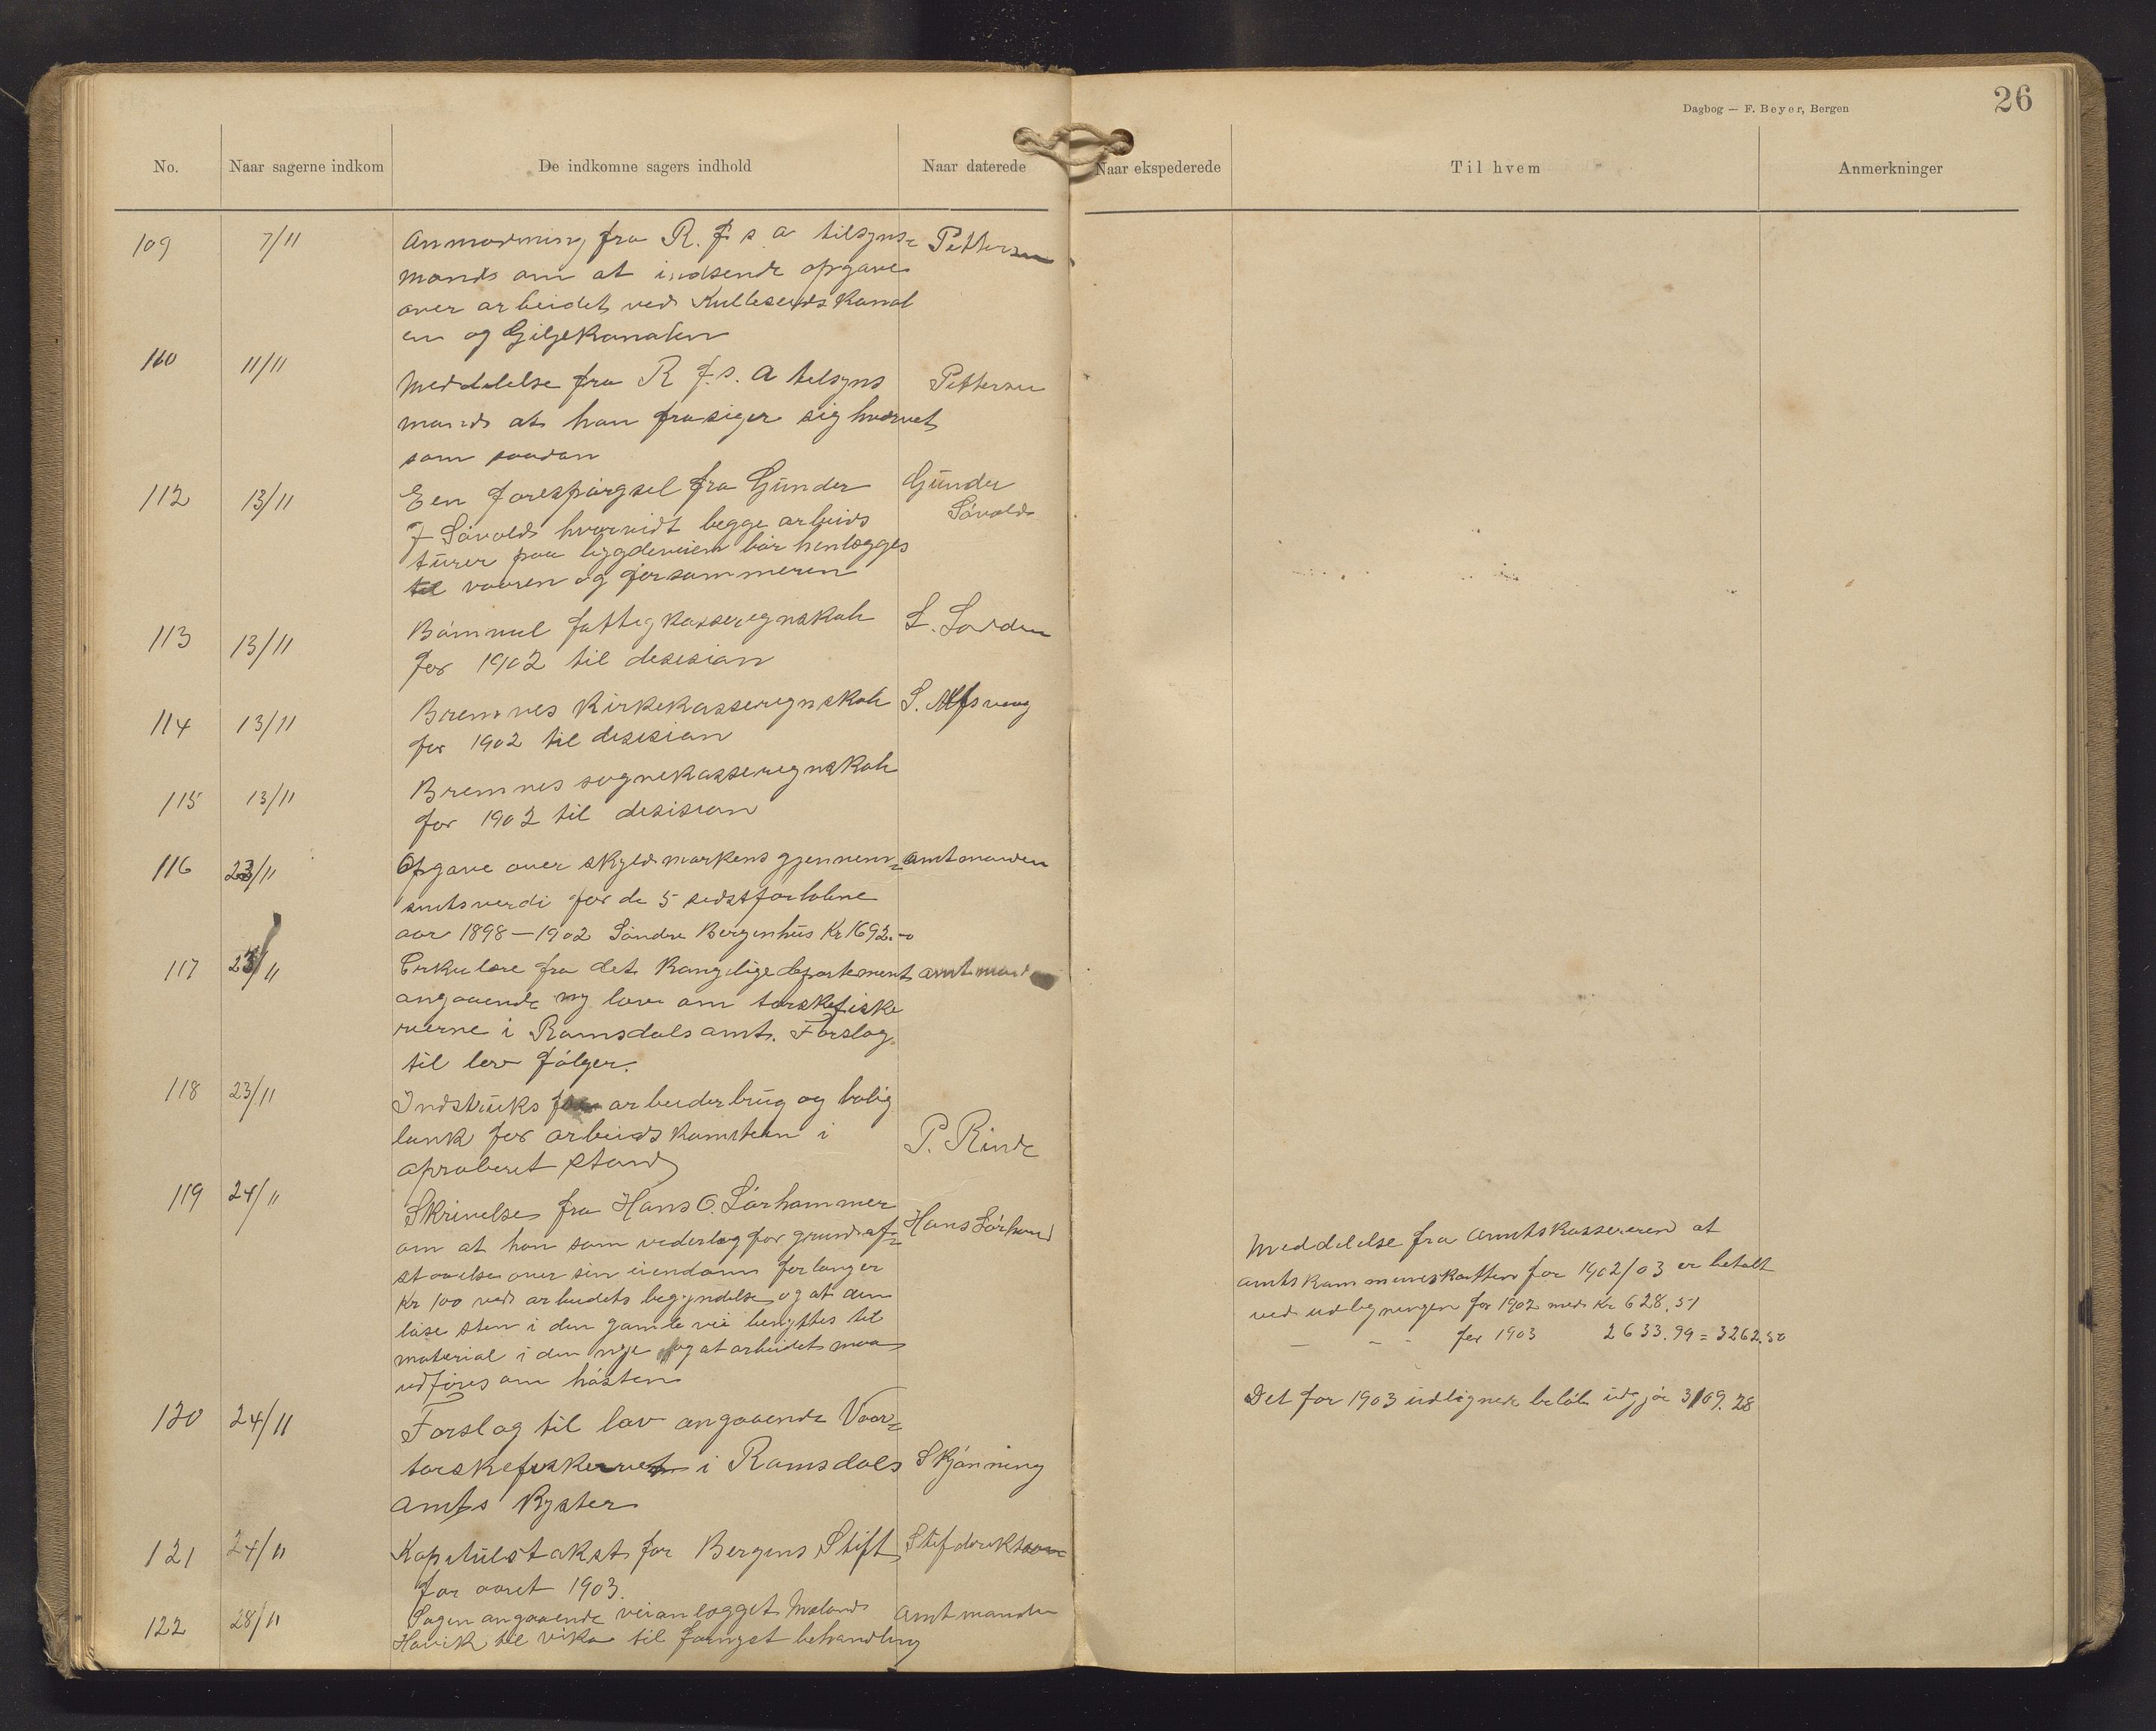 Dagbog — F. Beyer, Bergen
26
No. Naar sagerne indkom De indkomne sagers indhold Naar daterede Naar ekspederede Til hvem Anmerkninger
109 7/11 Anmodning fra R. f. s. a tilsyns= Pettersen
mands om at indsende opgave
over arbeidet ved Kulleseidskanal
en og Giljekanalen
110 11/11 Meddelelse fra R f. s. a tilsyns Pettersen
mands at han frasiger sig hvervet
som saadan
112 13/11 Een forespørgsel fra Gunder Gunder
J Søvold hvorvidt begge arbeids Søvold
turer paa bygdeveien bør henlægges
til vaaren og forsommeren
113 13/11 Bømmel fattigkasseregnskab L.
for 1902 til desisian
114 13/11 Bremnes Kirkekasseregnskab S. Alfsvaag
for 1902 til desisian
115 13/11 Bremnes sognekasseregnskab
for 1902 til desisian
116 23/11 Opgave over skyldmarkens gjennem= amtmanden
snitsverdi for de 5 sidstforløbne
aar 1898 — 1902 Søndre Bergenhus Kr 1692.-
117 23/11 Cirkulære fra det Kongelige departement amtmand
angaaende ny lov om torskefiske
rierne i Romsdals amt. Forslag
til lov følger.
118 23/11 Indstruks for arbeiderbrug og bolig
laank for arbeids i P. Rinde
aproberet stand
119 24/11 Skrivelse fra Hans O. Sørhammer
om at han som vederlag for grundaf= Hans Sørham
staaelse over sin eiendom forlanger
Kr 100 ved arbeidets begyndelse og at den
løse sten i den gamle vei benyttes til
material i den nye og at arbeidet maa
udføres om høsten
120 24/11 Forslag til lov angaaende Vaar=
torskefiskeriet i Romsdals Skjønning
amts Kyster
121 24/11 Kapitulstakst for Bergens Stift
for aaret 1903.
122 28/11 Sagen angaaende veianlægget Mæland Amtmanden
Hovik til Vika til fornyet behandling
Meddelelse fra Amtskassereren at
amtskommuneskatten for 1902/03 er betalt
ved udligningen for 1902 med Kr 628.51
— - - for 1903 2633.99 = 3262.50
Det for 1903 udlignede beløb udgjør 3109.28